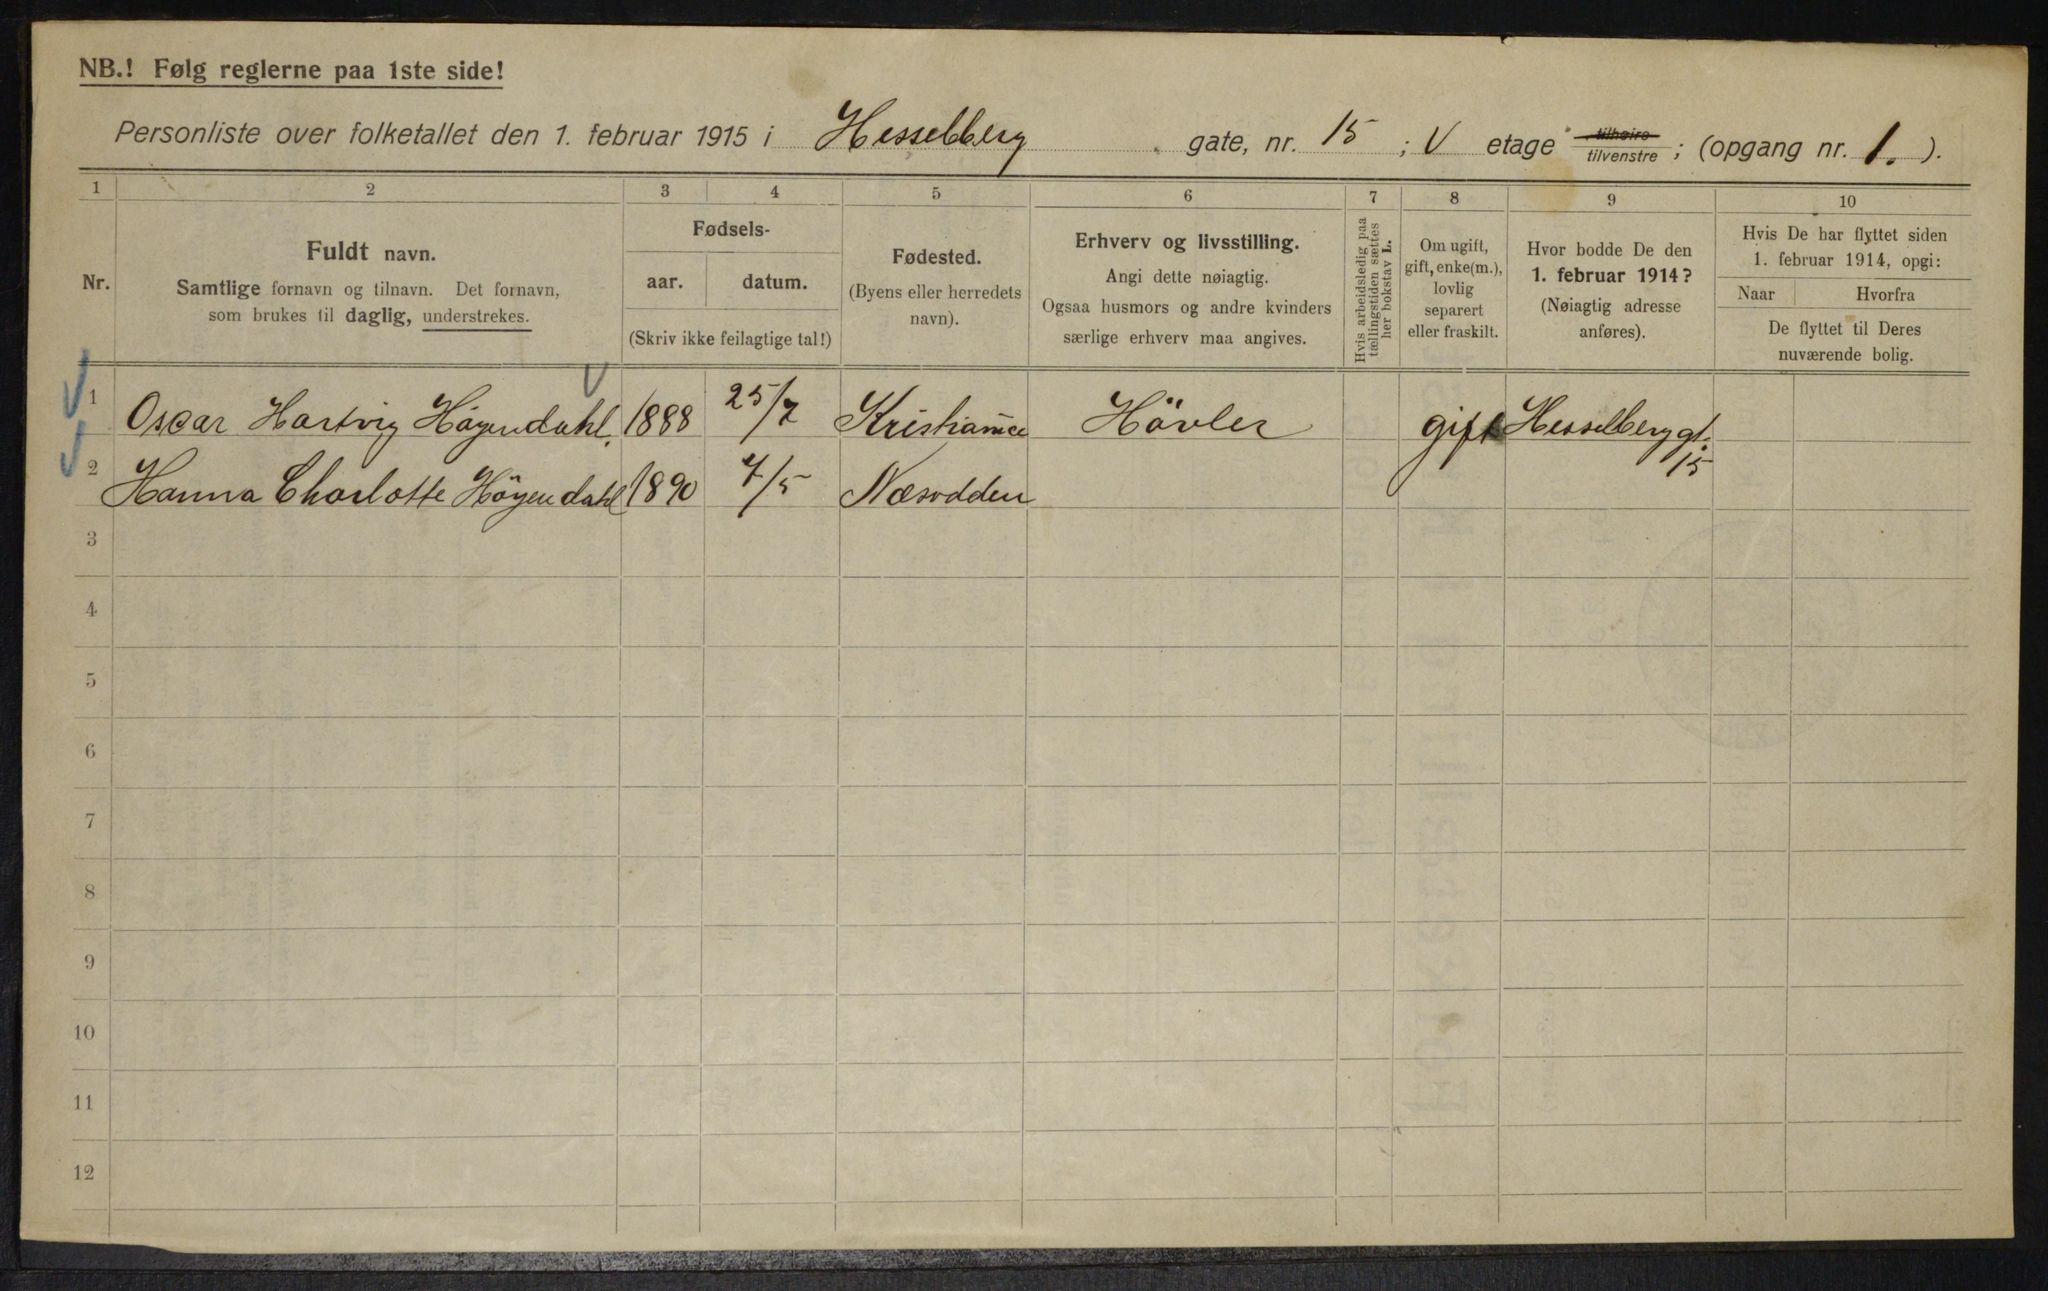 NB.! Følg reglerne paa 1ste side!
Personliste over folketallet den 1. februar 1915 i Hesselberg gate, nr. 15 ; V etage tilhøire tilvenstre ; (opgang nr. 1. ).
1 2 3 4 5 6 7 8 9 10
Nr.
Fuldt navn.
Samtlige fornavn og tilnavn. Det fornavn,
som brukes til daglig, understrekes.
Fødsels-
aar. datum.
(Skriv ikke feilagtige tal!)
Fødested.
(Byens eller herredets
navn).
Erhverv og livsstilling.
Angi dette nøiagtig.
Ogsaa husmors og andre kvinders
særlige erhverv maa angives.
Hvis arbeidsledig paa
tællingstiden sættes
her bokstav L.
Om ugift,
gift, enke(m.),
lovlig
separert
eller fraskilt.
Hvor bodde De den
1. februar 1914?
(Nøiagtig adresse
anføres).
Hvis De har flyttet siden
1. februar 1914, opgi:
Naar Hvorfra
De flyttet til Deres
nuværende bolig.
1 Oscar Hartvig Höyendahl. 1888 25/7 Kristiania Hövler gift Hesselberg gt.
15
2 Hanna Charlotte Höyendahl 1890 7/5 Næsodden
3
4
5
6
7
8
9
10
11
12